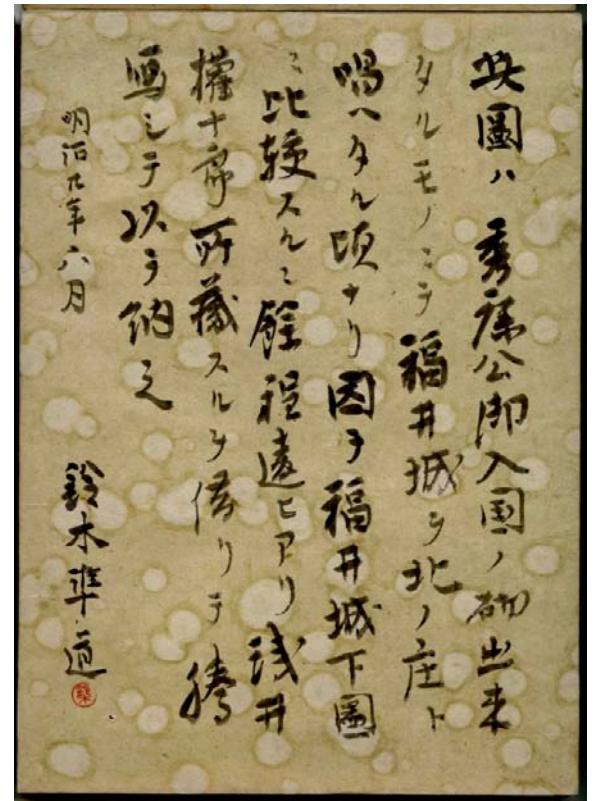 此圖ハ秀康公御入国ノ砌出来
タルモノニテ福井城ヲ北ノ庄ト
唱ヘタル頃ナリ因テ福井城下圖
ニ比較スルニ餘程違ヒアリ浅井
權十郎所蔵スルヲ借リテ謄
寫シテ以テ納之
明治九年六月
鈴木準道